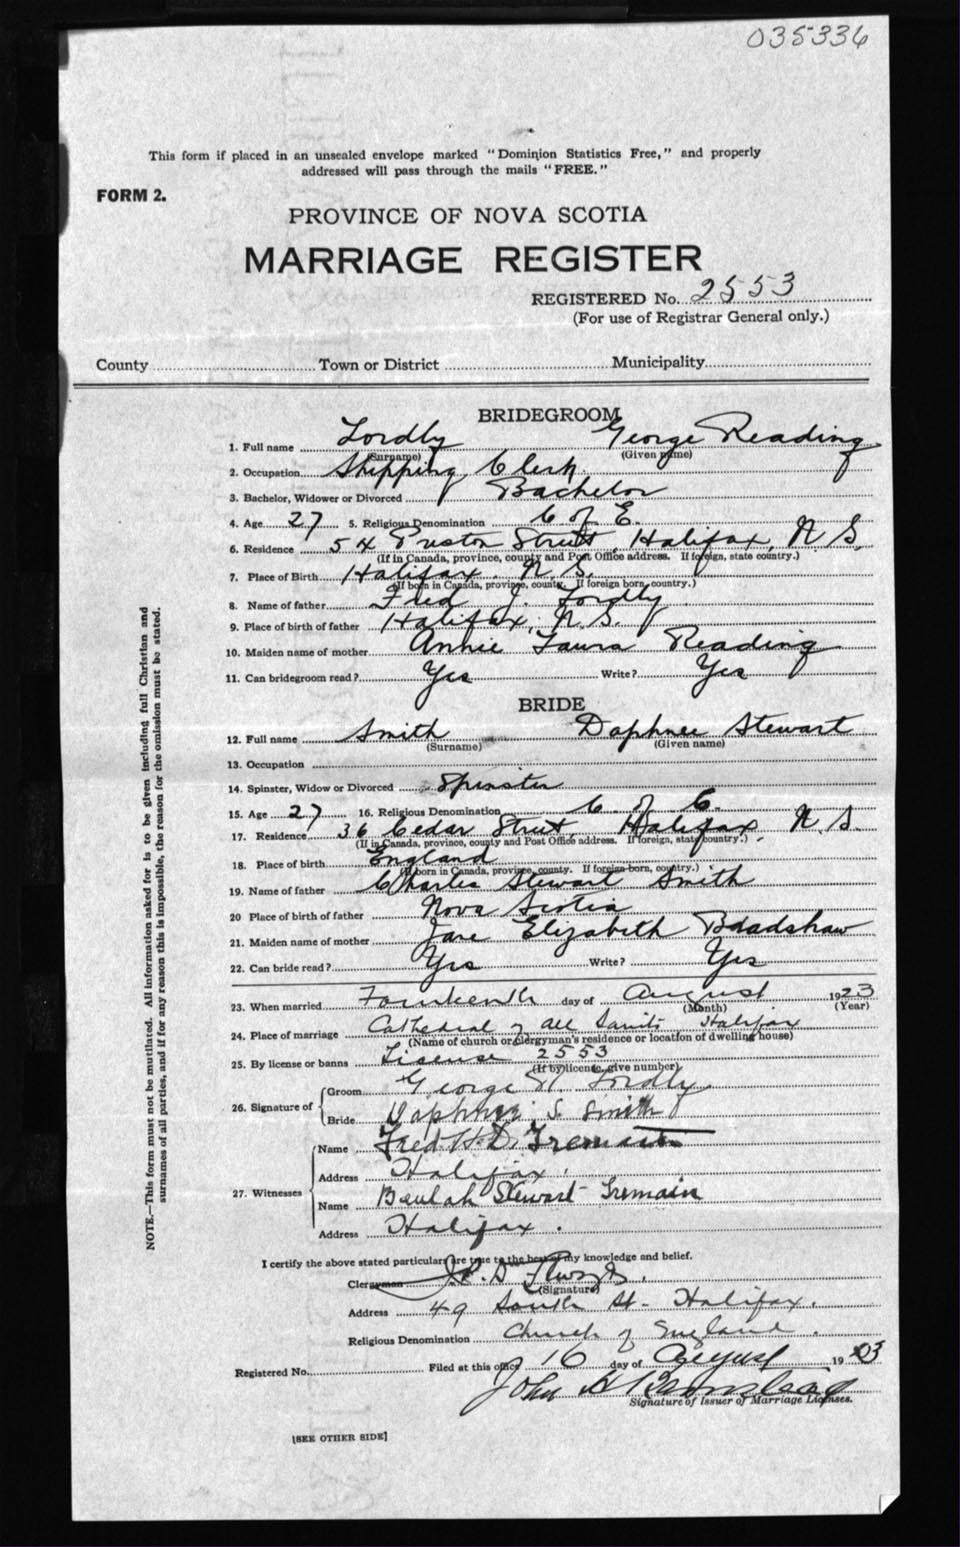 035336
This form if placed in an unsealed envelope marked "Dominion Statistics Free," and properly
addressed will pass through the mails "FREE."
FORM 2.
PROVINCE OF NOVA SCOTIA
MARRIAGE REGISTER
REGISTERED No. 2553
(For use of Registrar General only.)
County Town or District Municipality
BRIDEGROOM
1. Full name Lordly George Reading
(Surname) (Given name)
2. Occupation Shipping Clerk
3. Bachelor, Widower or Divorced Bachelor
4. Age 27 5. Religious Denomination C of E.
6. Residence 54 Street, Halifax, N.S.
(If in Canada, province, county and Post Office address. If foreign, state country.)
7. Place of Birth Halifax. N.S.
(If born in Canada, province, county. If foreign born, country.)
8. Name of father Fred J. Lordly
9. Place of birth of father Halifax, N.S.
10. Maiden name of mother Annie Laura Reading
11. Can bridegroom read? Yes Write? Yes
BRIDE
12. Full name Smith Daphnee Stewart
(Surname) (Given name)
13. Occupation
14. Spinster, Widow or Divorced Spinster
15. Age 27 16. Religious Denomination C of E.
17. Residence 36 Cedar Street, Halifax N.S.
(If in Canada, province, county and Post Office address. If foreign, state country.)
18. Place of birth England
(If born in Canada, province, county. If foreign-born, country.)
19. Name of father Charles Stewart Smith
20 Place of birth of father Nova Scotia
21. Maiden name of mother Jane Elizabeth Bradshaw
22. Can bride read? Yes Write? Yes
23. When married Fourteenth day of August 1923
(Month) (Year)
24. Place of marriage Cathedral of All Saints Halifax
(Name of church or clergyman's residence or location of dwelling house)
25. By license or banns License 2553
(If by license, give number)
26. Signature of
Groom George R. Lordly
Bride Daphnee S. Smith
27. Witnesses
Name Fred H.D. Tremain
Address Halifax.
Name Beulah Stewart Tremain
Address Halifax.
I certify the above stated particulars are true to the best of my knowledge and belief.
Clergyman
(Signature)
Address 49 South St. Halifax.
Religious Denomination Church of England.
Registered No. Filed at this office 16 day of August 1923
John
Signature of Issuer of Marriage Licenses.
[SEE OTHER SIDE]
NOTE.—This form must not be mutilated. All information asked for is to be given including full Christian and
surnames of all parties, and if for any reason this is impossible, the reason for the omission must be stated.